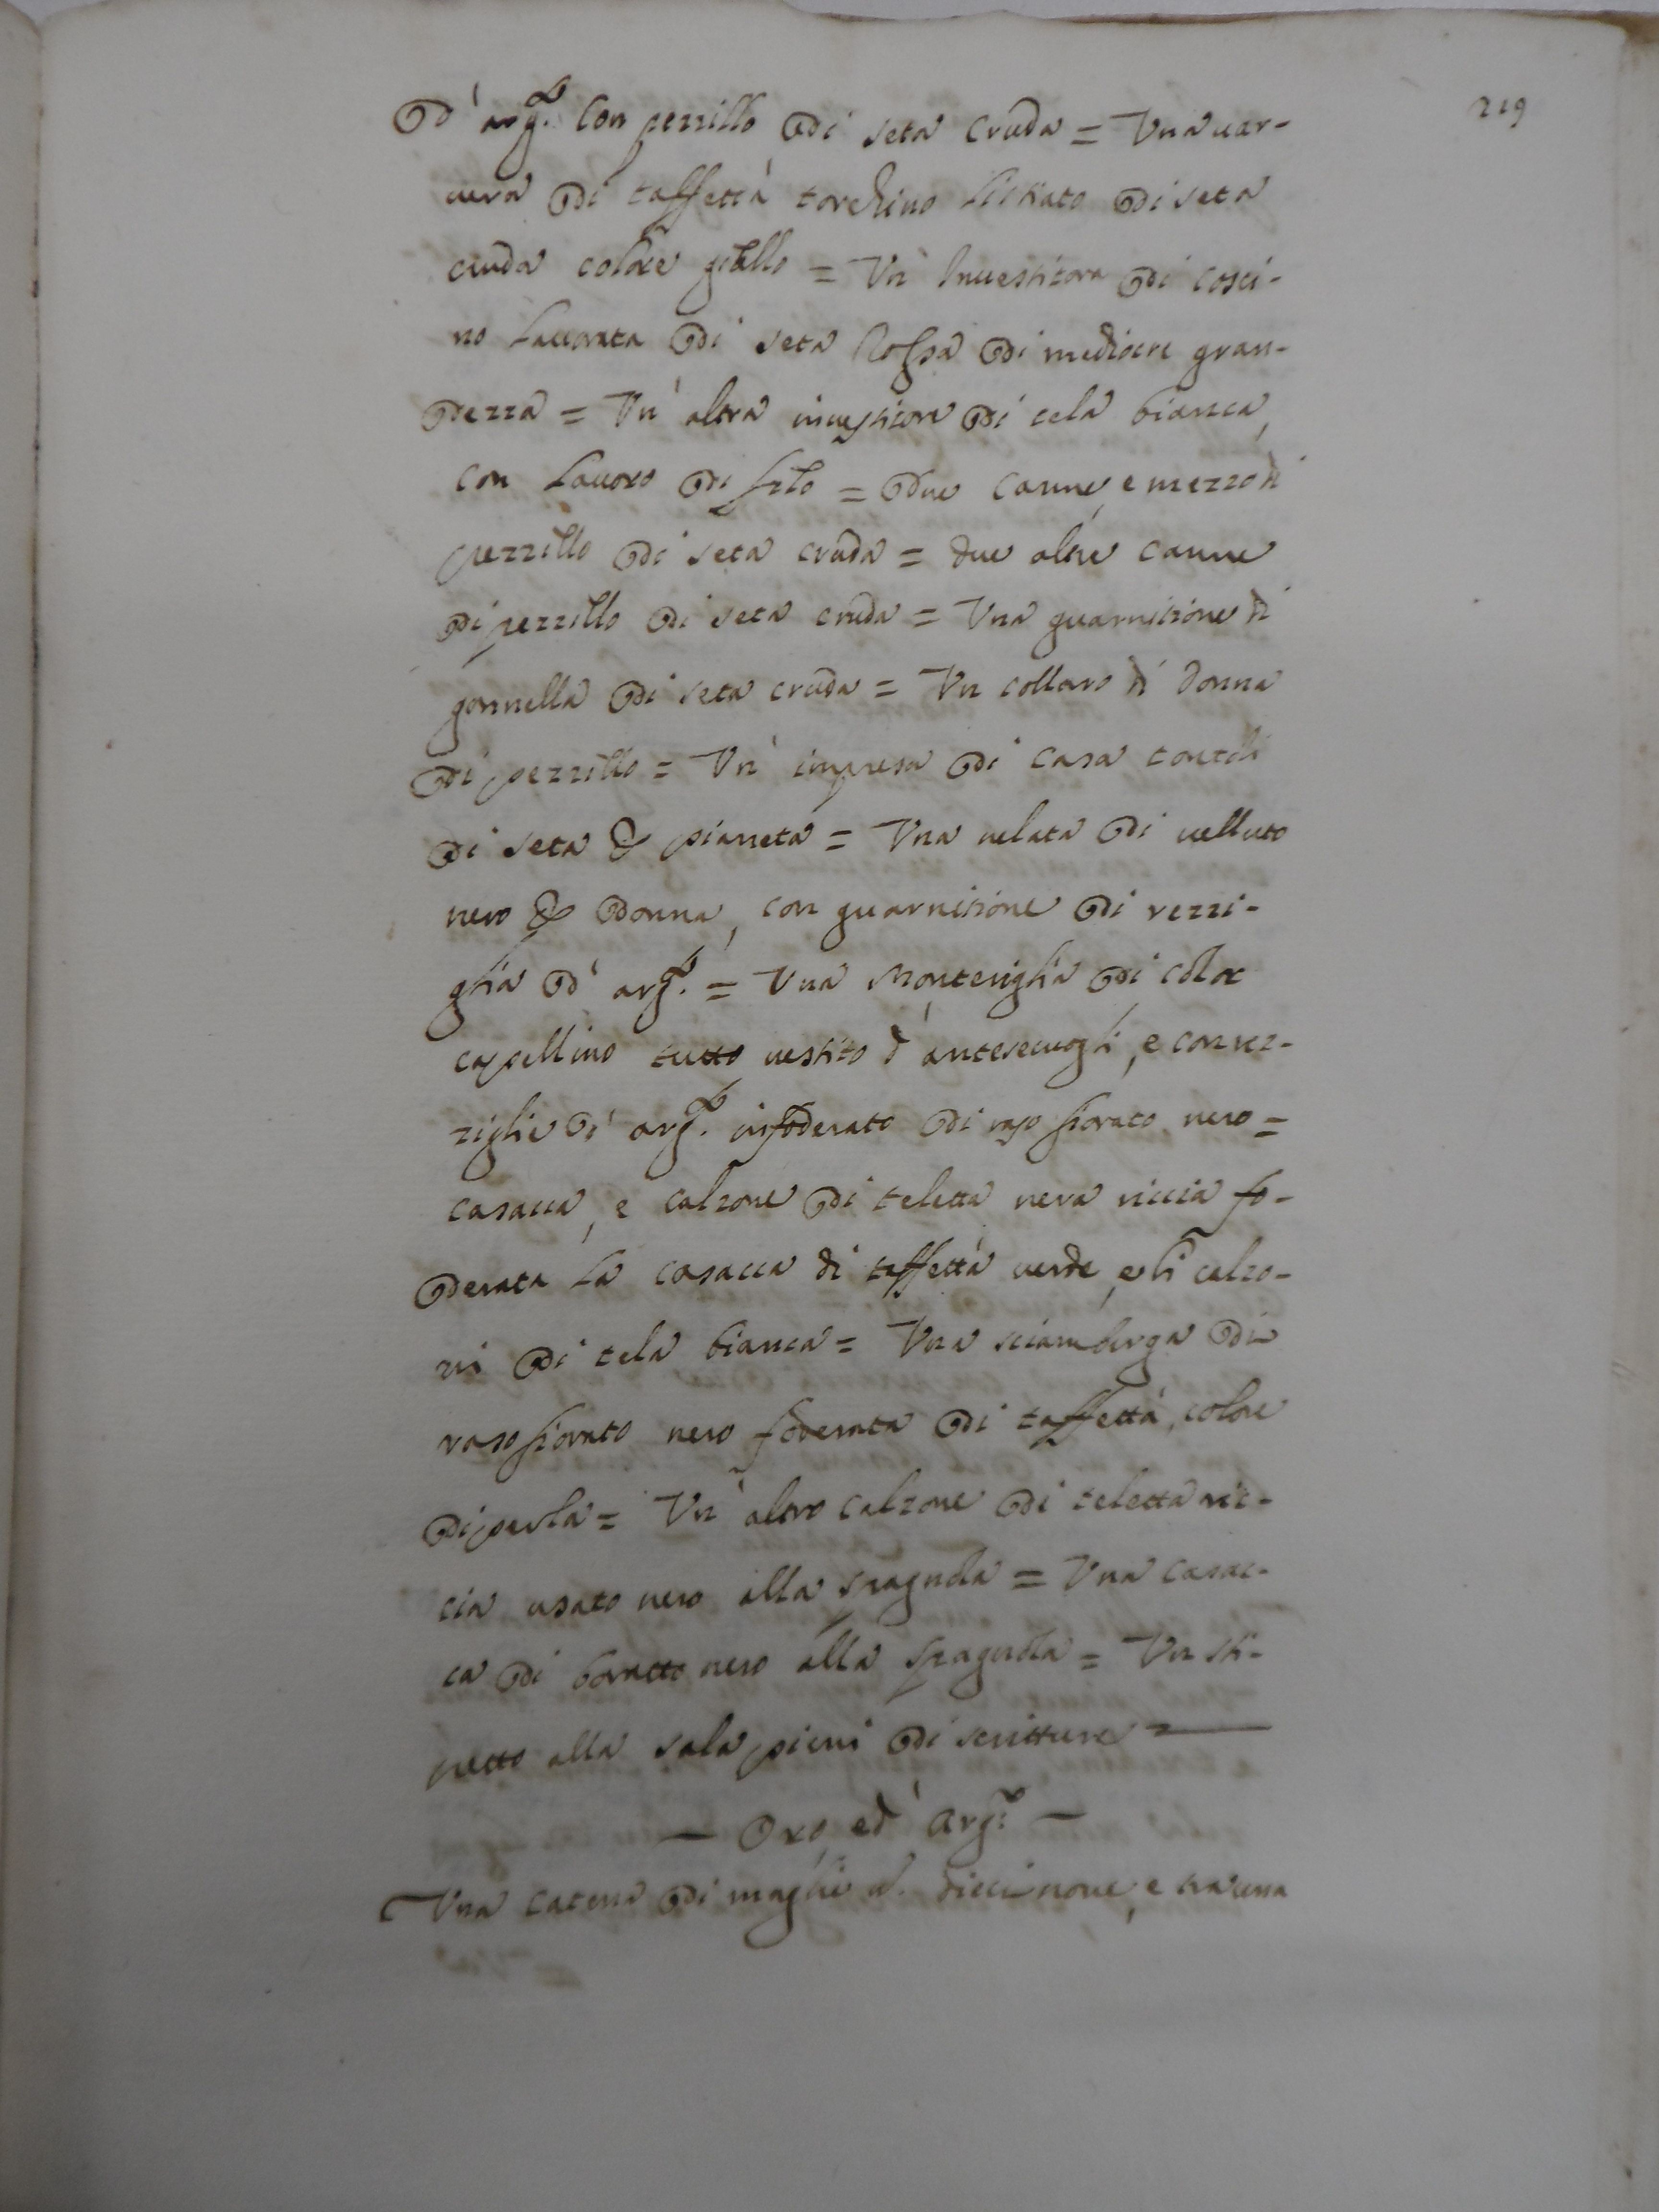 219
d' arg.to con pezzillo di seta cruda = Una var-
vera di taffettà torchino listiato di seta
cruda colore giallo = Un' Investitora di cosci-
no lavorata di seta Rossa di mediocre gran-
dezza = Un' altra investitore di tela bianca,
con lavoro di filo = due canne, e mezzo di
pezzillo di seta cruda = due altre canne
di pezzillo di seta cruda = Una guarnitione di
gonnella di seta cruda = Un collaro di donna
di pezzillo = Un' impresa di casa
di seta p pianeta = Una velata di velluto
nero p donna, con guarnitione di rezzi-
glia d' arg.to = Una Monteriglia di colore
capellino tutto vestito d' antesecuogli, e con rez-
ziglie d' arg.to infoderato di raso fiorato nero =
casacca, e calzone di teletta nera riccia fo-
derata la casacca di taffettà verde, e li calzo-
ni di tela bianca = Una sciamberga di
raso fiorato nero foderata di taffettà, colore
di perla = Un' altro calzone di teletta ric-
cia usato nero alla spagnola = Una casac-
ca di borratto nero alla spagnola = Un sti-
petto alla sala pieni di scritture =
— Oro, ed' Arg.to —
Una catena di maglie n. diecinove, e